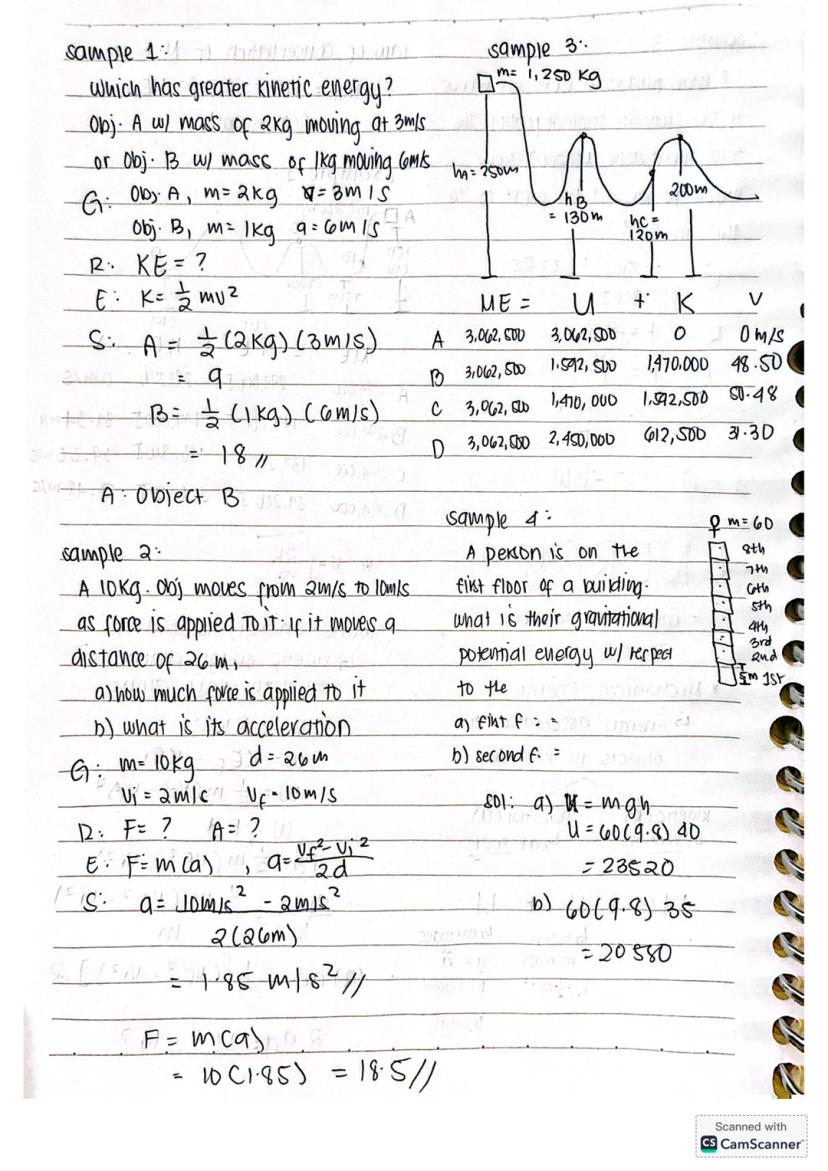 sample 1:
which has greater kinetic energy?
Obj. A w/ mass of 2kg moving at 3m/s
or Obj. B w/ mass of 1kg moving 6m/s
G: Obj A, m=2kg v=3m/s
Obj. B, m=1kg a=6m/s
R: KE=?
E: K=½ mv²
S: A=½(2kg)(3m/s)
= 9
B=½(1kg)(6m/s)
= 18//
A: Object B
sample 2:
A 10kg. Obj moves from 2m/s to 10m/s
as force is applied to it. if it moves a
distance of 26m,
a) how much force is applied to it
b) what is its acceleration
G: m=10kg d=26m
Vi=2m/s Vf=10m/s
R: F=? A=?
E: F=m(a), a=Vf²-Vi²
2d
S: a=10m/s²-2m/s²
2(26m)
= 1.85 m/s²//
F=m(a)
= 10(1.85) = 18.5//
sample 3:
m=1,250 kg
h=250m
hB
=130m
hC=
120m
200m
ME = U + K V
A 3,062,500 3,062,500 0 0 m/s
B 3,062,500 1,592,500 1,470,000 48.50
C 3,062,500 1,470,000 1,592,500 50.48
D 3,062,500 2,450,000 612,500 31.30
sample 4:
A person is on the
first floor of a building.
what is their gravitational
potential energy w/ respect
to the
a) first f. =
b) second f. =
m=60
8th
7th
6th
5th
4th
3rd
2nd
5m 1st
sol: a) U=mgh
U=60(9.8)40
=23520
b) 60(9.8)35
=20580
Scanned with
CS CamScanner